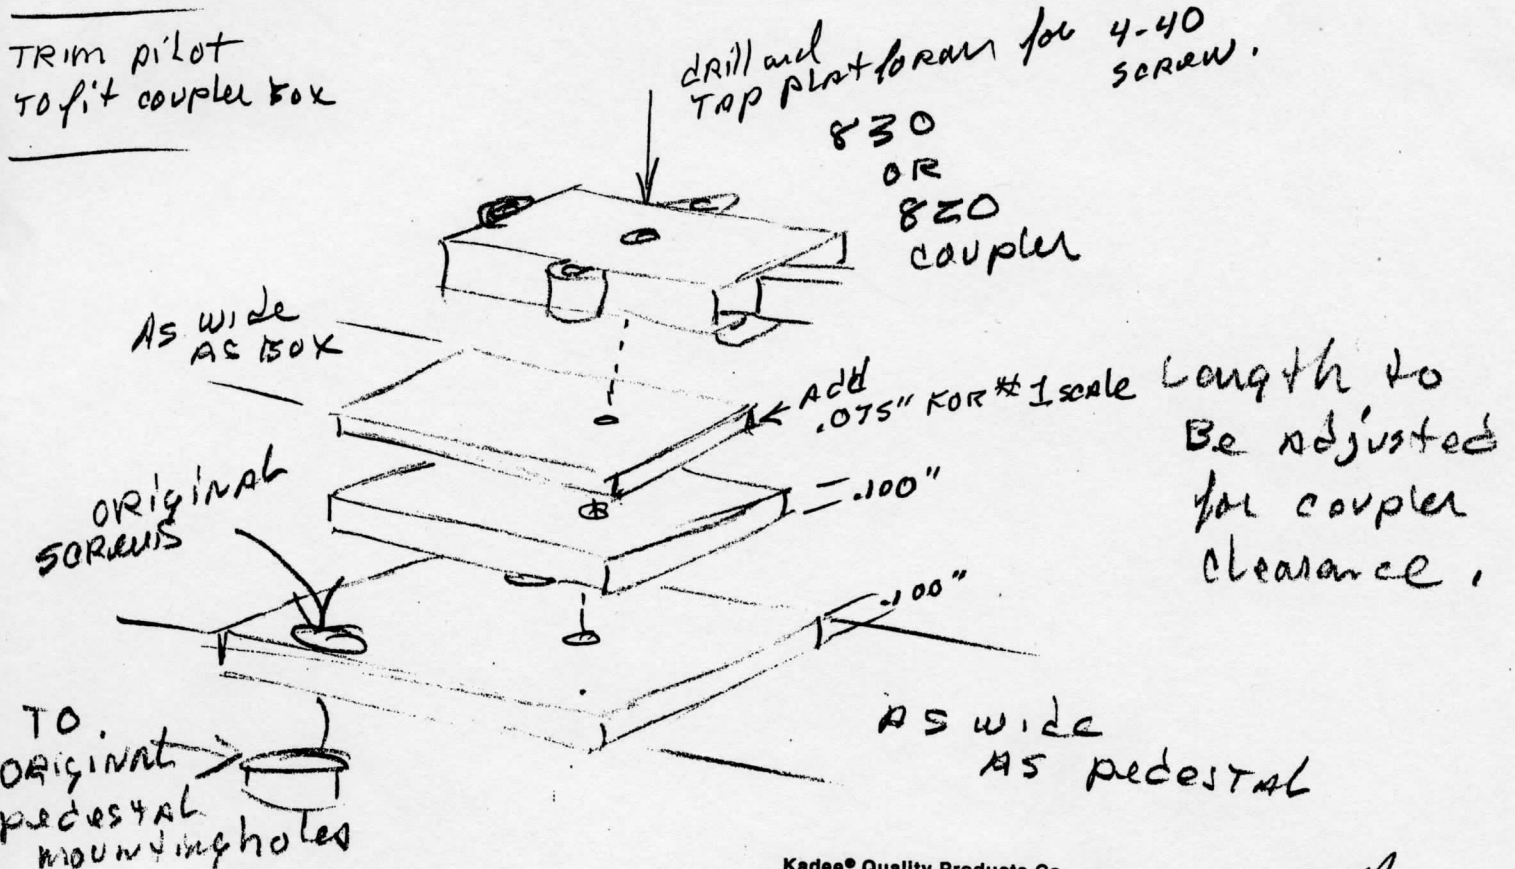 TRIM pilot
TO fit coupler BOX
drill and
TAP platform for 4-40
SCREW.
830
OR
820
coupler
As wide
AS BOX
Add
.075" FOR #1 scale
Length to
Be adjusted
for coupler
clearance.
ORIGINAL
SCREWS
.100"
.100"
TO
ORIGINAL
pedestal
mounting holes
AS wide
AS pedestal
Kadee® Quality Products Co